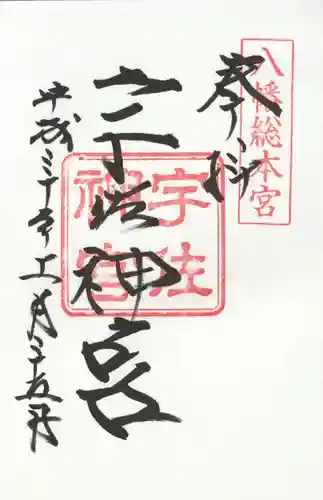 八幡総本宮
奉拝
宇佐神宮
宇佐
神宮
平成三十年十一月二十五日